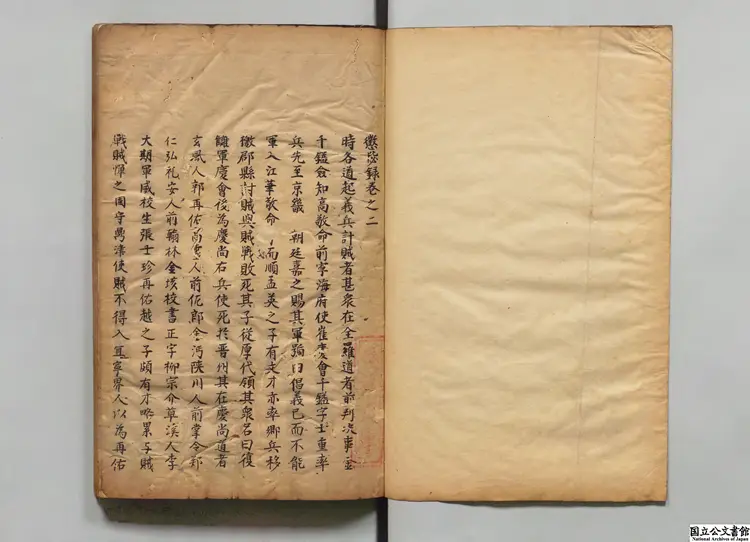 懲毖録卷之二
時各道起義兵討賊者甚衆在全羅道者前判决事金
千鎰僉知高敬命前寧海府使崔慶會千鎰字士重率
兵先至京畿 朝廷嘉之賜其軍號曰倡義已而不能
軍入江華敬命 而順孟英之子有文才亦率鄉兵移
檄郡縣討賊與賊戰敗死其子從厚代領其衆名曰復
讎軍慶會後為慶尚右兵使死扵晋州其在慶尚道者
玄風人郭再佑高灵人前佐郎金沔陜川人前掌令郑
仁弘礼安人前翰林金垓校書正字柳宗介草溪人李
大期軍威校生張士珍再佑越之子頗有才略累与賊
戰賊憚之固守津使賊不得入宜寧界人以為再佑
国立公文書館
National Archives of Japan